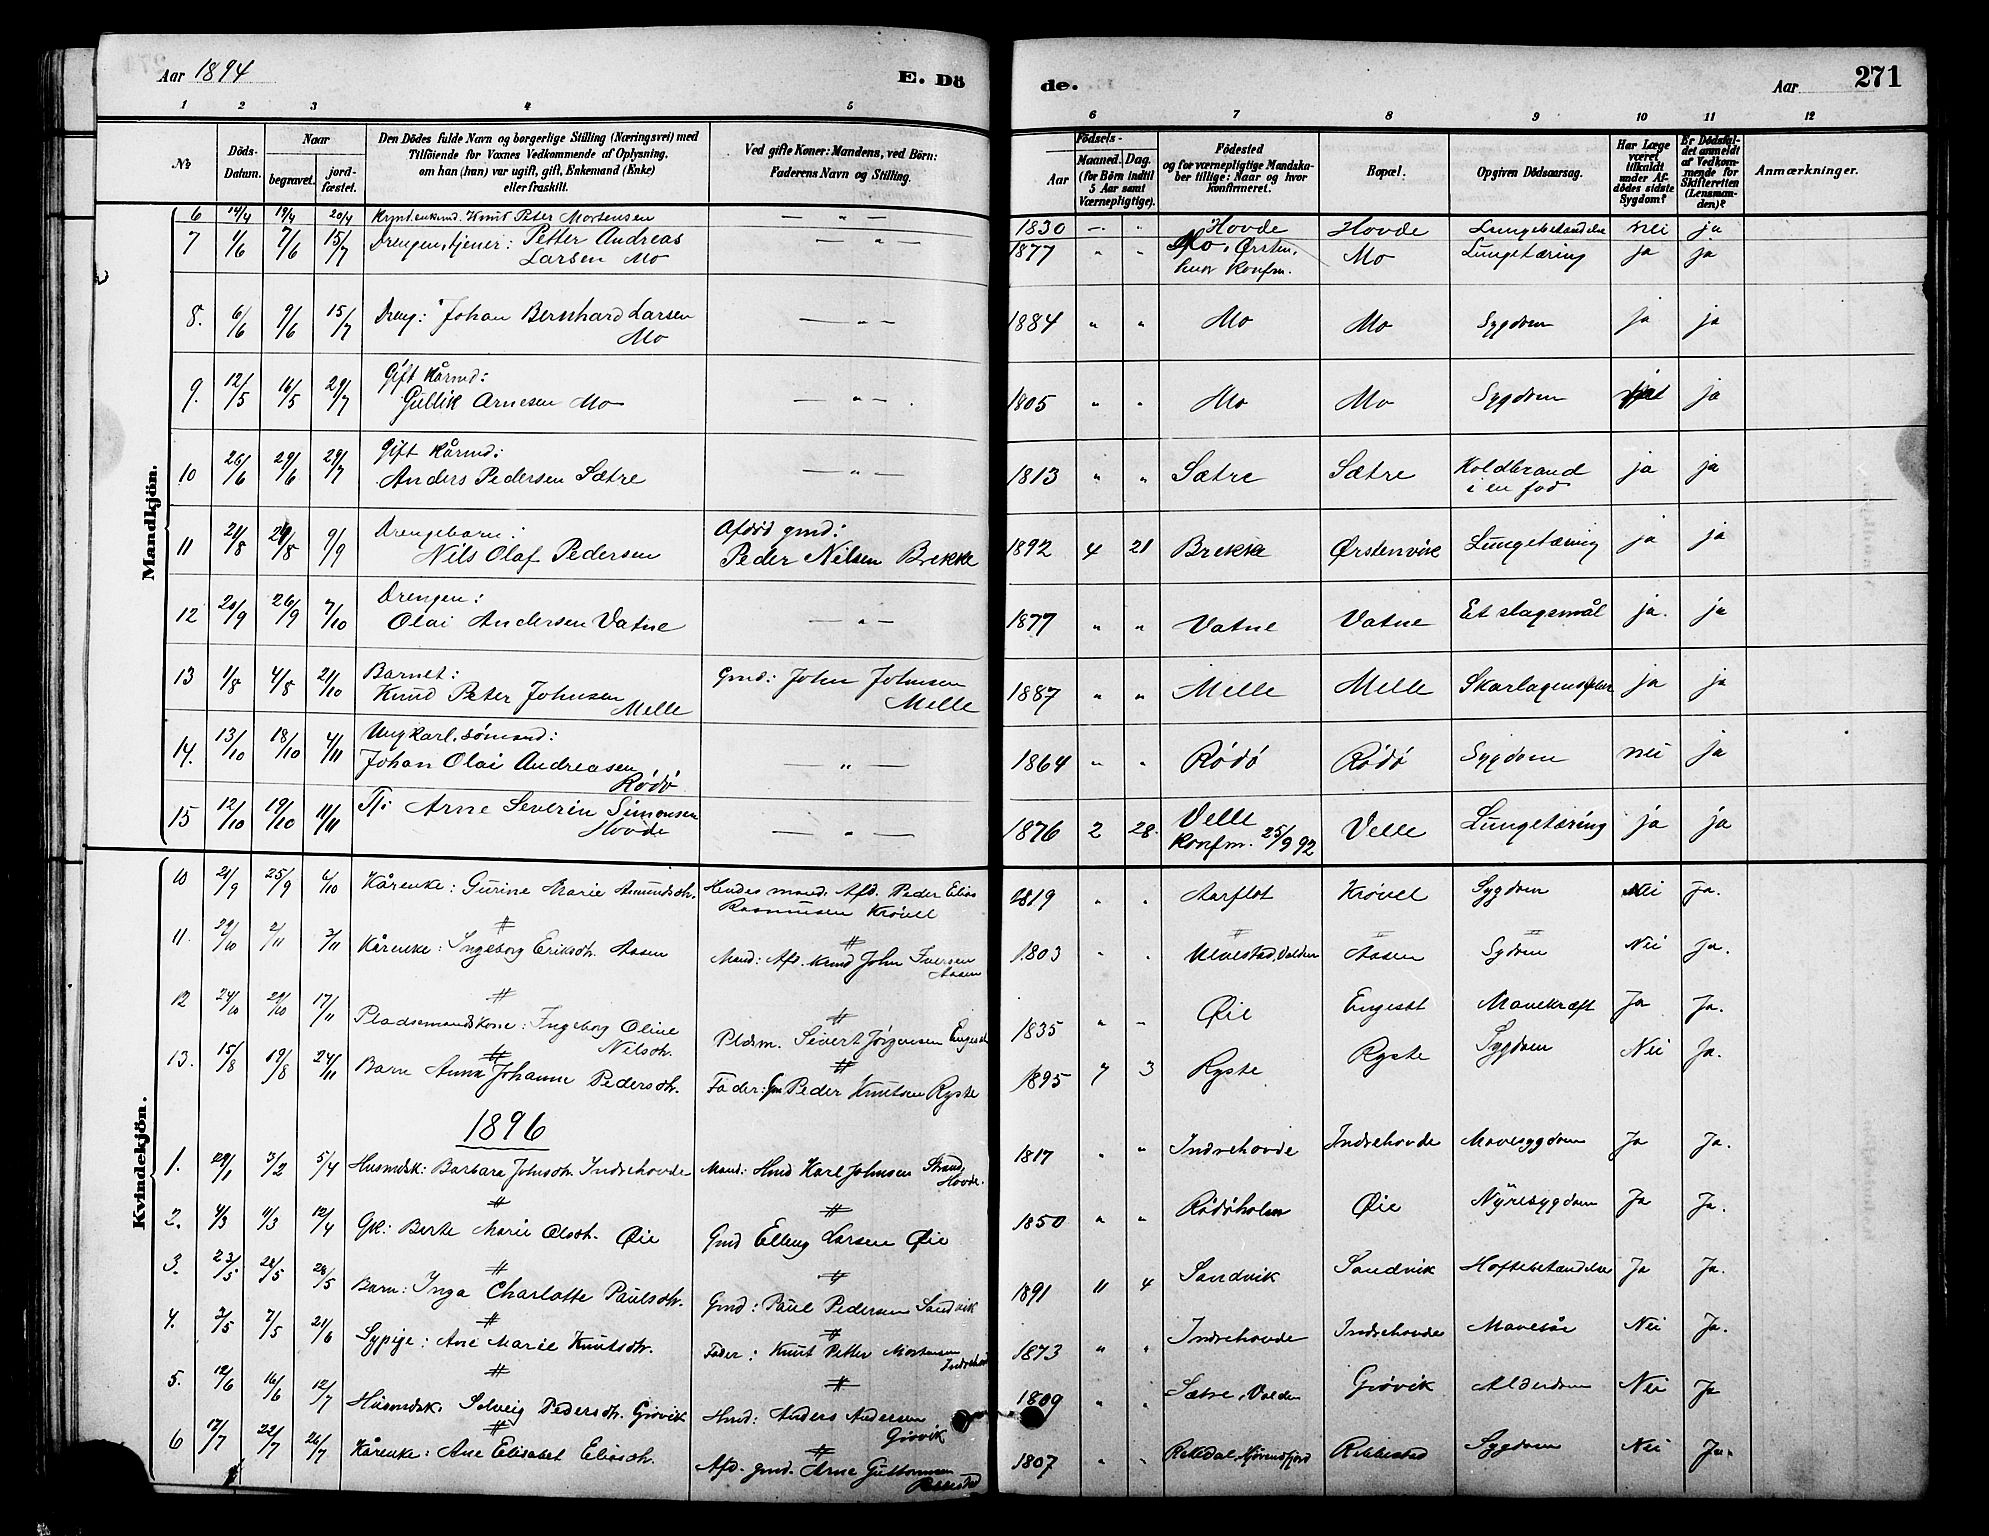 Aar 1894 E. Dö de. Aar 271
1 2 3 4 5 6 7 8 9 10 11 12
No
Döds-Datum.
Naar
begravet. jord-fæstet.
Den Dödes fulde Navn og borgerlige Stilling (Næringsvei) med
Tilföiende for Voxnes Vedkommende af Oplysning,
om han (hun) var ugift, gift, Enkemand (Enke)
eller fraskilt.
Ved gifte Koner: Mandens, ved Börn:
Faderens Navn og Stilling.
Födsels-
Aar Maaned. Dag.
(for Börn indtil
5 Aar samt
Værnepligtige).
Födested
og for værnepligtige Mandska-
ber tillige: Naar og hvor
konfirmeret.
Bopæl.
Opgiven Dödsaarsag.
Har Læge
været
tilkaldt
under Af-
dödes sidste
Sygdom?
Er Dödsfal-
det anmeldt
af Vedkom-
mende for
Skifteretten
(Lensman-
den)?
Anmærkninger.
Mandkjön.
6 14/4 19/4 20/4 Knut Peter Mortensen — " — 1830 — " Hovde Hovde Lungebetændelse nei ja
7 1/6 7/6 15/7 Drengen, tjener: Petter Andreas — " — 1877 " " Mo, Ørsten, Mo Lungetæring ja ja
Larsen Mo hvor konfm.
8. 6/6 9/6 15/7 Dreng: Johan Bernhard Larsen — " — 1884 " " Mo Mo Sygdom ja ja
Mo
9. 12/5 16/5 29/7 Gift kårmd:
Gullik Arnesen Mo — " — 1805 " " Mo Mo Sygdom ja
10 26/6 29/6 29/7 Gift kårmd:
Anders Pedersen Sætre — " — 1813 " " Sætre Sætre Koldbrand ja ja
i en fod
11 21/8 9/9 Drengebarn: Afdød gmd:
Nils Olaf Pedersen Peder Nilsen Brekke 1892 4 21 Brekke Ørstenvik Lungetæring ja ja
12 20/9 26/9 7/10 Drengen:
Olai Andersen Vatne — " — 1877 " " Vatne Vatne Et slagsmål ja. ja
13 1/8 4/8 21/10 Barnet: Gmd: John Johnsen
Knud Peter Johnsen Melle 1887 " " Melle Melle Skarlagensfeber ja ja
Melle
14. 13/10 18/10 4/11 Ungkarl, sømand:
Johan Olai Andreasen — " — 1864 " " Rödö Rödö Sygdom nei ja
Rödö
15 12/10 19/10 11/11 Tj: Arne Severin Simonsen — " — 1876 2 28. Velle Velle Lungetæring ja ja
Hovde konfm. 25/9 92
Kvindekjön.
10 21/9 25/9 6/10 Kårenke: Gurine Marie Amundsdtr. Hendes mand. Afd. Peder Elias 1819 " " Aarflot Krövel Sygdom Nei Ja.
Rasmussen Krövel
11. 2/11 3/11 Kårenke: Ingeborg Eriksdtr. Aasen Mand: Afd. Kmd John Iversen 1803 " " Ulvestad, Volden Aasen Sygdom Nei Ja.
Aasen
12 24/10 29/10 17/11 Pladsemandskone: Ingeborg Oline Pldsm. Sivert Jørgensen Engeset 1835 " " Øie Engeset Mavekræft Ja Ja.
Nilsdtr.
13. 15/8 19/8 24/11 Barn Anna Johanne Pedersdtr. Fader: Gm Peder Knutsen Ryste 1895 7 3 Ryste Ryste Sygdom Nei Ja.
1896
1. 29/1 3/2 5/4 Husmdsk: Barbara Johnsdtr. Indrehovde Mand: Hmd Karl Johnsen Strand, 1817 " " Indrehovde Indrehovde Mavesygdom Ja Ja.
Hovde.
2. 4/3 12/4 Gk: Berte Marie Olsdtr. Øie Gmd Elling Larsen Øie 1850 " " Rödöholm Øie Nyresygdom Ja Ja.
3. 23/5 28/5 28/5 Barn: Inga Charlotte Paulsdtr. Gmd: Paul Pedersen Sandvik 1891 11 4 Sandvik Sandvik Hoftebetændelse Ja Ja.
4. 2/5 7/5 21/6 Sypige: Ane Marie Knutsdtr. Fader: Knut Petter Mortensen 1873 " " Indrehovde Indrehovde Mavesår Nei Ja.
Indrehovde
5. 12/6 16/6 12/7 Husmdsk. Solveig Pedersdtr. Grøvik Hmd: Anders Andersen 1809 " " Sætre, Volden Grøvik Alderdom Nei Ja
Grøvik
6 17/7 22/7 26/7 Kårenke: Ane Elisabet Eliasdtr. Afd. gmd. Arne Guttormsen 1807 " " Rekedal, Hjørendfjord Ribbestad Sygdom Nei Ja.